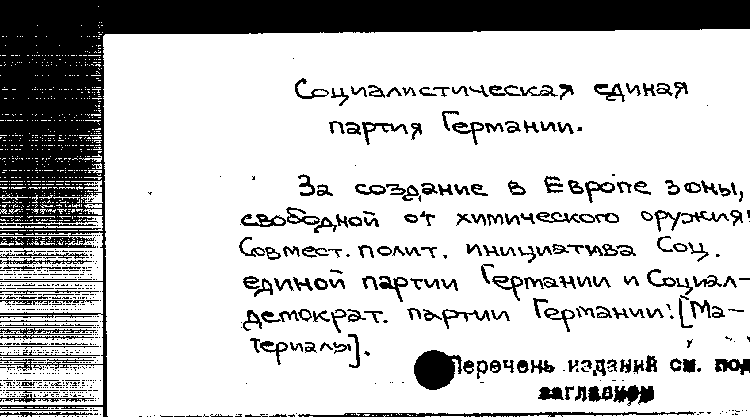 Социалистическая единая
партия Германии.
За создание в Европе зоны,
свободной от химического оружия:
Совмест. полит. инициатива Соц.
единой партии Германии и Социал-
демократ. партии Германии: [Ма-
териалы].
Перечень изданий см. под
заглавием